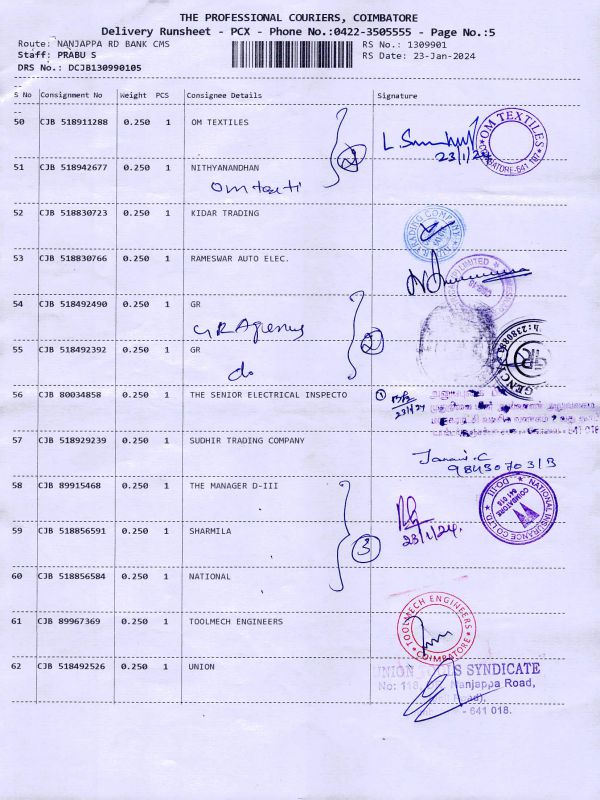 THE PROFESSIONAL COURIERS, COIMBATORE
Delivery Runsheet - PCX - Phone No.:0422-3505555 - Page No.:5
Route: NANJAPPA RD BANK CMS RS No.: 1309901
Staff: PRABU S RS Date: 23-Jan-2024
DRS No.: DCJB130990105
S No Consignment No Weight PCS Consignee Details Signature
50 CJB 518911288 0.250 1 OM TEXTILES
23/1/24
OM TEXTILES
51 CJB 518942677 0.250 1 NITHYANANDHAN
2
52 CJB 518830723 0.250 1 KIDAR TRADING
TRADING COMPANY
53 CJB 518830766 0.250 1 RAMESWAR AUTO ELEC.
LIMITED
54 CJB 518492490 0.250 1 GR
GR Agencies
2
55 CJB 518492392 0.250 1 GR
do
GR
56 CJB 80034858 0.250 1 THE SENIOR ELECTRICAL INSPECTO
1
23/1/24
57 CJB 518929239 0.250 1 SUDHIR TRADING COMPANY
58 CJB 89915468 0.250 1 THE MANAGER D-III
NATIONAL INSURANCE CO LTD
DO-III
COIMBATORE
641 018
23/1/24.
59 CJB 518856591 0.250 1 SHARMILA
3
60 CJB 518856584 0.250 1 NATIONAL
61 CJB 89967369 0.250 1 TOOLMECH ENGINEERS
TOOLMECH ENGINEERS
COIMBATORE
62 CJB 518492526 0.250 1 UNION
UNION SYNDICATE
No: 118, Nanjappa Road,
- 641 018.